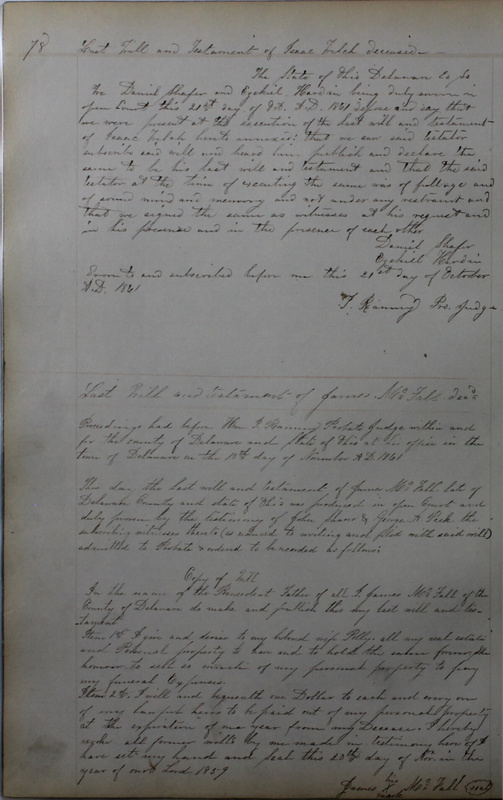 78 Last Will and Testament of Isaac Felch deceased
The State of Ohio Delaware Co, Ss
We Daniel Shafer and Ezekiel Hardin being duly sworn in
open Court this 21st day of Oct. A.D. 1861 depose and say that
we were present at the execution of the last will and testament
of Isaac Felch hereto annexed: that we saw said testator
subscribe said will and heard him publish and declare the
same to be his last will and testament and that the said
testator at the time of executing the same was of full age and
of sound mind and memory and not under any restraint and
that we signed the same as witnesses at his request and
in his presence and in the presence of each other
Daniel Shafer
Ezekiell Hardin
Sworn to and subscribed before me this 21st day of October
A.D. 1861
T. Ranney Pro. Judge
Last Will and testament of James McFall decd
Proceedings had before Hon T. Ranney Probate Judge within and
for the county of Delaware and State of Ohio at his office in the
town of Delaware on the 18th day of November A.D. 1861
This day the last will and testament of James McFall late of
Delaware County and state of Ohio was produced in open Court and
duly proven by the testimony of John Shaw & George W. Peck the
subscribing witnesses thereto (as reduced to writing and filed with said will)
admitted to Probate & ordered to be recorded as follows:
Copy of Will
In the name of the Benevolent Father of all I James McFall of the
County of Delaware do make and publish this my last will and tes-
tament
Item 1st I give and devise to my beloved wife Polly all my real estate
and Personal property to have and to hold the same forever, She
however to sell so much of my personal property to pay
my funeral Expenses.
Item 2d. I will and bequeath one Dollar to each and every one
of my lawful heirs to be paid out of my personal property
at the expiration of one year from my Decease. I hereby
revoke all former wills by me made in testimony hereof I
have set my hand and seal this 20th day of Nov. in the
year of our Lord 1859
James his mark McFall (seal)